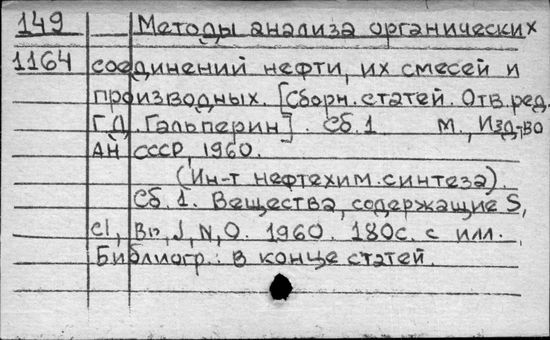 149 Методы анализа органических
1164 соединений нефти, их смесей и
производных. [Сборн. статей. Отв. ред.
Г.Д. Гальперин]. Сб. 1 М., Изд-во
АН СССР, 1960.
(Ин-т нефтехим. синтеза).
Сб. 1. Вещества, содержащие S,
Cl, Br, J, N, O. 1960. 180с. с илл.
Библиогр.: в конце статей.